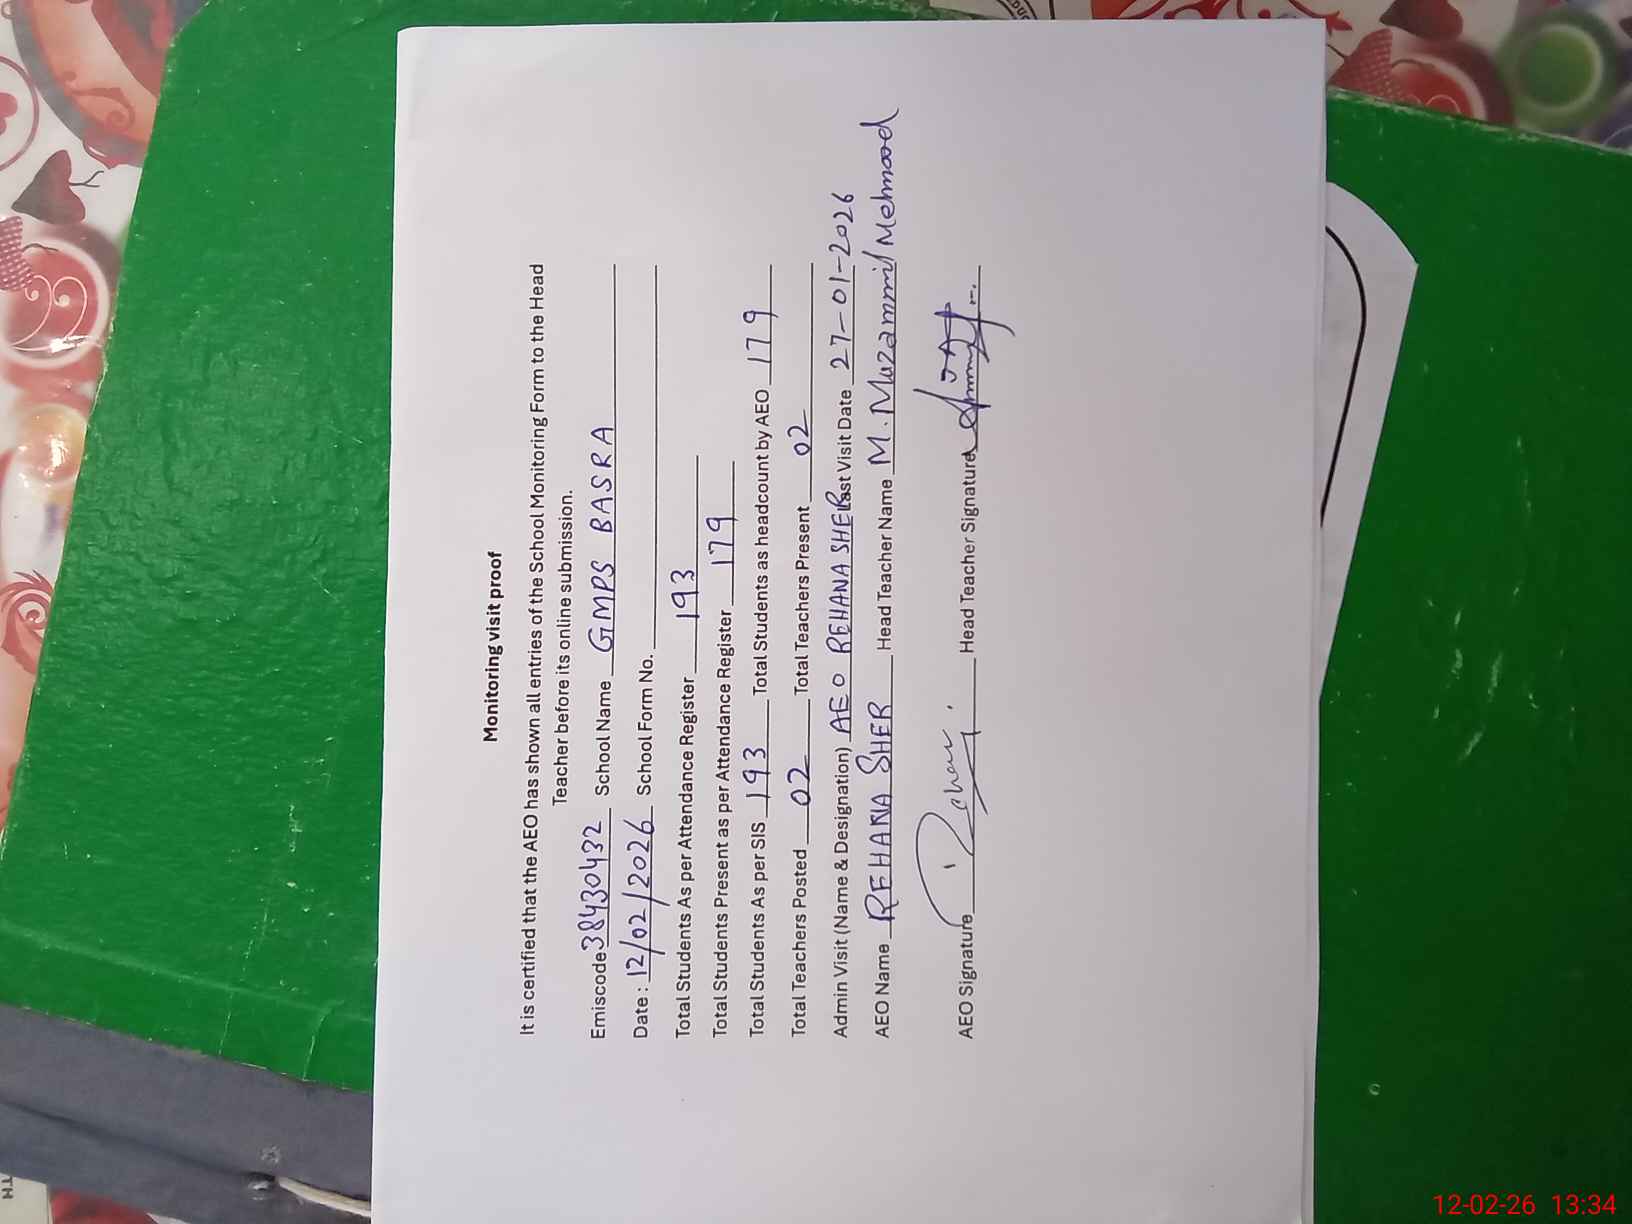 Monitoring visit proof
It is certified that the AEO has shown all entries of the School Monitoring Form to the Head
Teacher before its online submission.
Emiscode 38430432 School Name GMPS BASRA
Date : 12/02/2026 School Form No.
Total Students As per Attendance Register 193
Total Students Present as per Attendance Register 179
Total Students As per SIS 193 Total Students as headcount by AEO 179
Total Teachers Posted 02 Total Teachers Present 02
Admin Visit (Name & Designation) AEO REHANA SHER Last Visit Date 27-01-2026
AEO Name REHANA SHER Head Teacher Name M. Muzammil Mehmood
AEO Signature Head Teacher Signature
12-02-26 13:34
TH